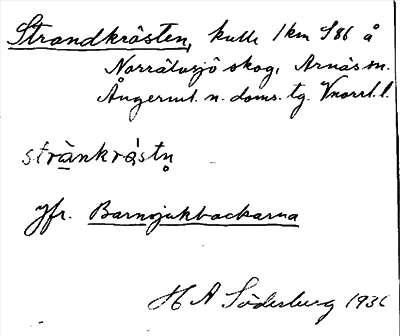 Strandkråsten, kulle 1 km S86 å
Norrälvsjö skog, Arnäs sn.
Ångerml. n. doms. tg. Vnorrl. l.
strànkrástn̥
Jfr. Barnsjukbackarna
H A Söderberg 193